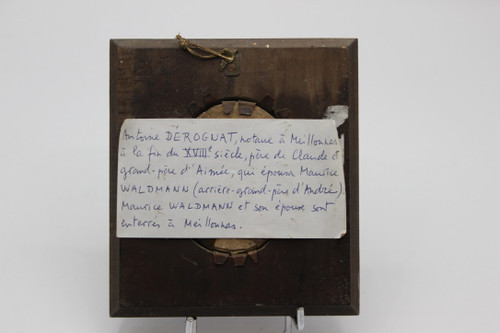 Antoine DÉROGNAT, notaire à Meillonnas
à la fin du XVIIIe siècle, père de Claude &
grand-père d'Aimée, qui épousa Maurice
WALDMANN (arrière-grand-père d'André)
Maurice WALDMANN et son épouse sont
enterrés à Meillonnas.